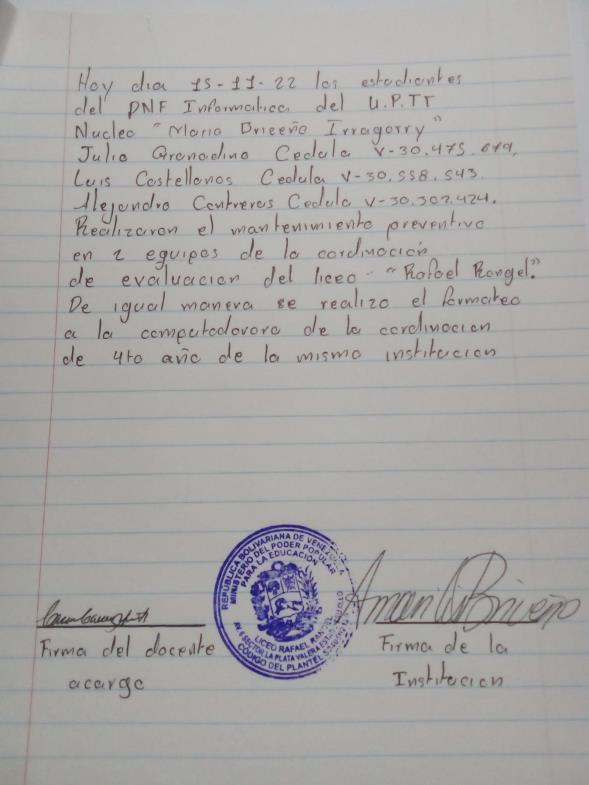 Hoy dia 15-11-22 los estudiantes
del PNF Informatica del U.P.TT
Nucleo "Mario Briceño Irragorry"
Julio Granadino Cedula V-30.475.679.
Luis Castellanos Cedula V-30.558.543.
Alejandro Contreras Cedula V-30.307.424.
Realizaron el mantenimiento preventivo
en 2 equipos de la cordinacion
de evaluacion del liceo - "Rafael Rangel."
De igual manera se realizo el formateo
a la computadovora de la cordinocion
de 4to año de la mismo institucion
REPUBLICA BOLIVARIANA DE VENEZUELA
MINISTERIO DEL PODER POPULAR
PARA LA EDUCACIÓN
LICEO RAFAEL RANGEL
SECTOR LA PLATA VALERA ESTADO
CODIGO DEL PLANTEL
Briceño
Firma del docente
acargo
Firma de la
Institucion